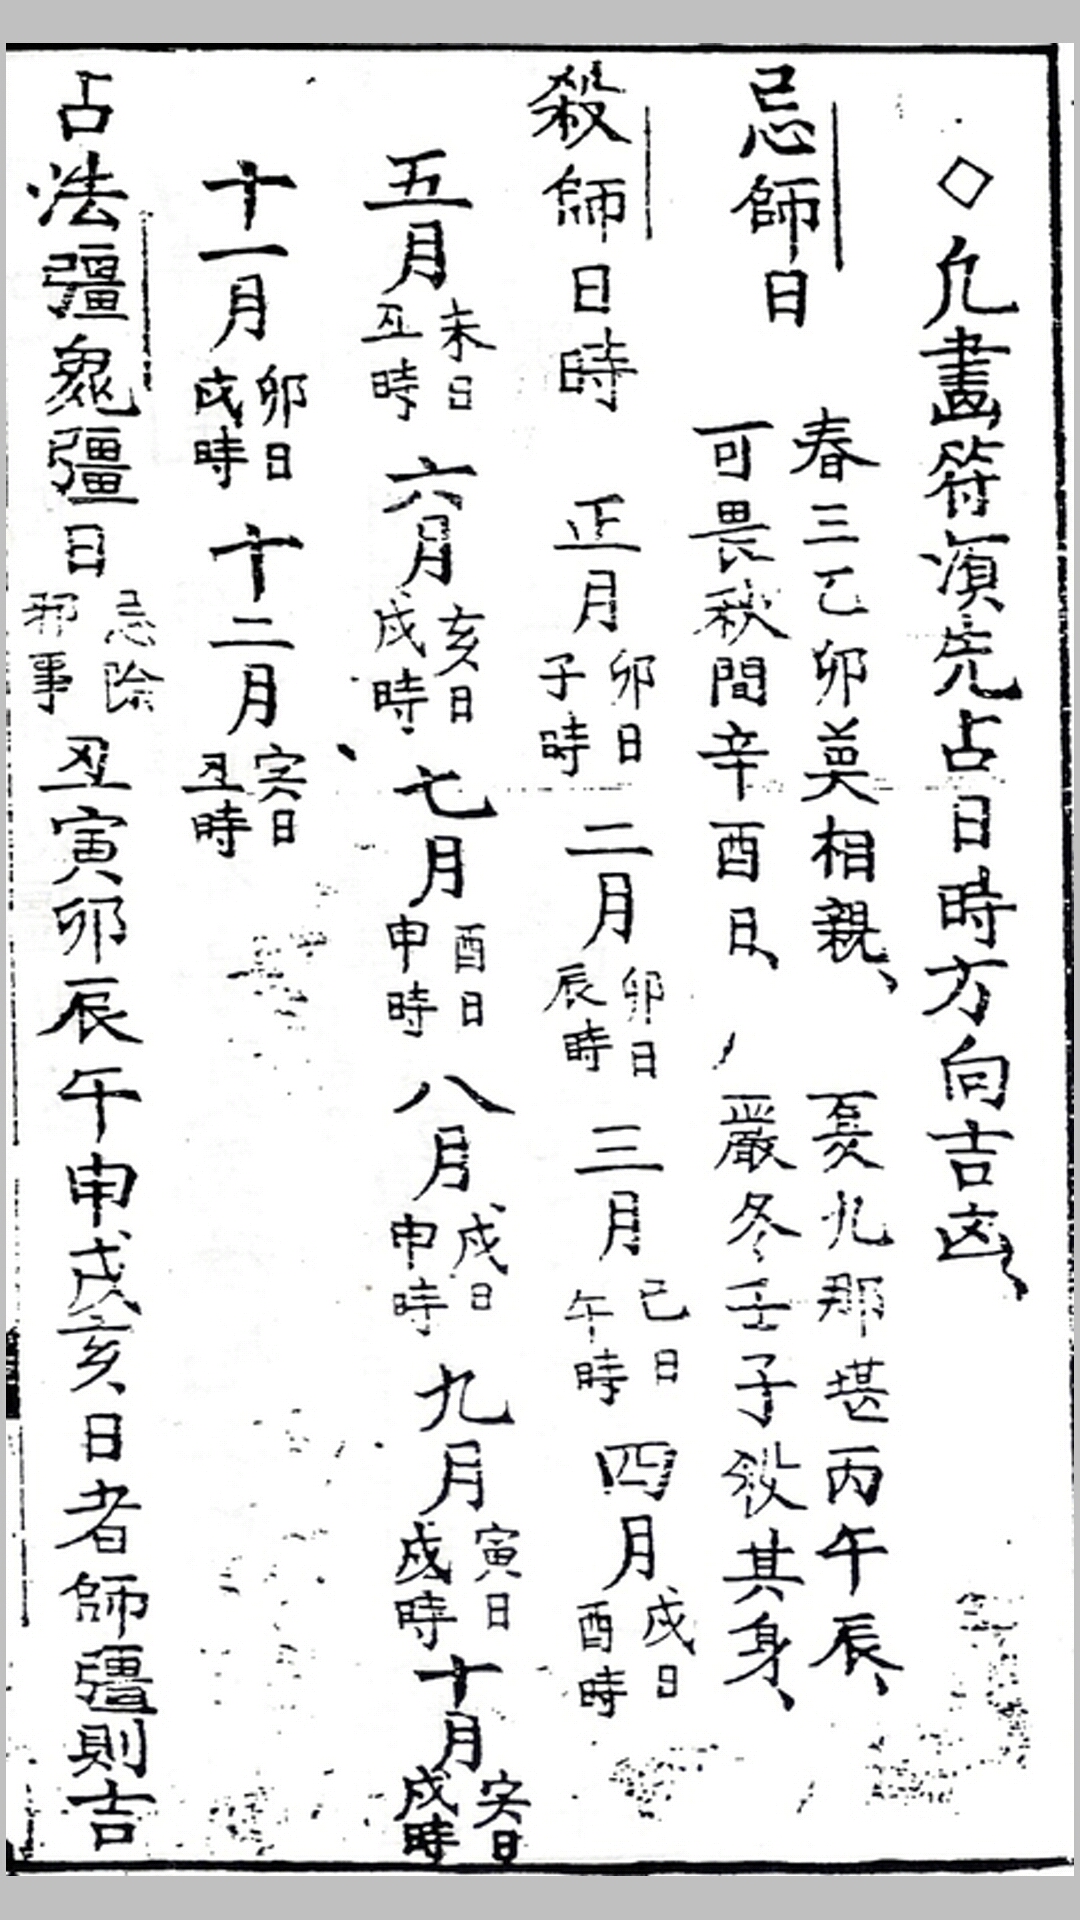 ◇凢畫符須先占日時方向吉凶、
忌師日
春三乙卯莫相親、
夏九那堪丙午辰、
可畏秋間辛酉日、
嚴冬壬子殺其身、
殺師日時 正月卯日子時 二月卯日辰時 三月己日午時 四月戌日酉時
五月未日丑時 六月亥日戌時 七月酉日申時 八月戌日申時 九月寅日戌時 十月亥日戌時
十一月卯日戌時 十二月亥日丑時
占法彊鬼彊日忌除邪事 丑寅卯辰午申戌亥日者師彊則吉